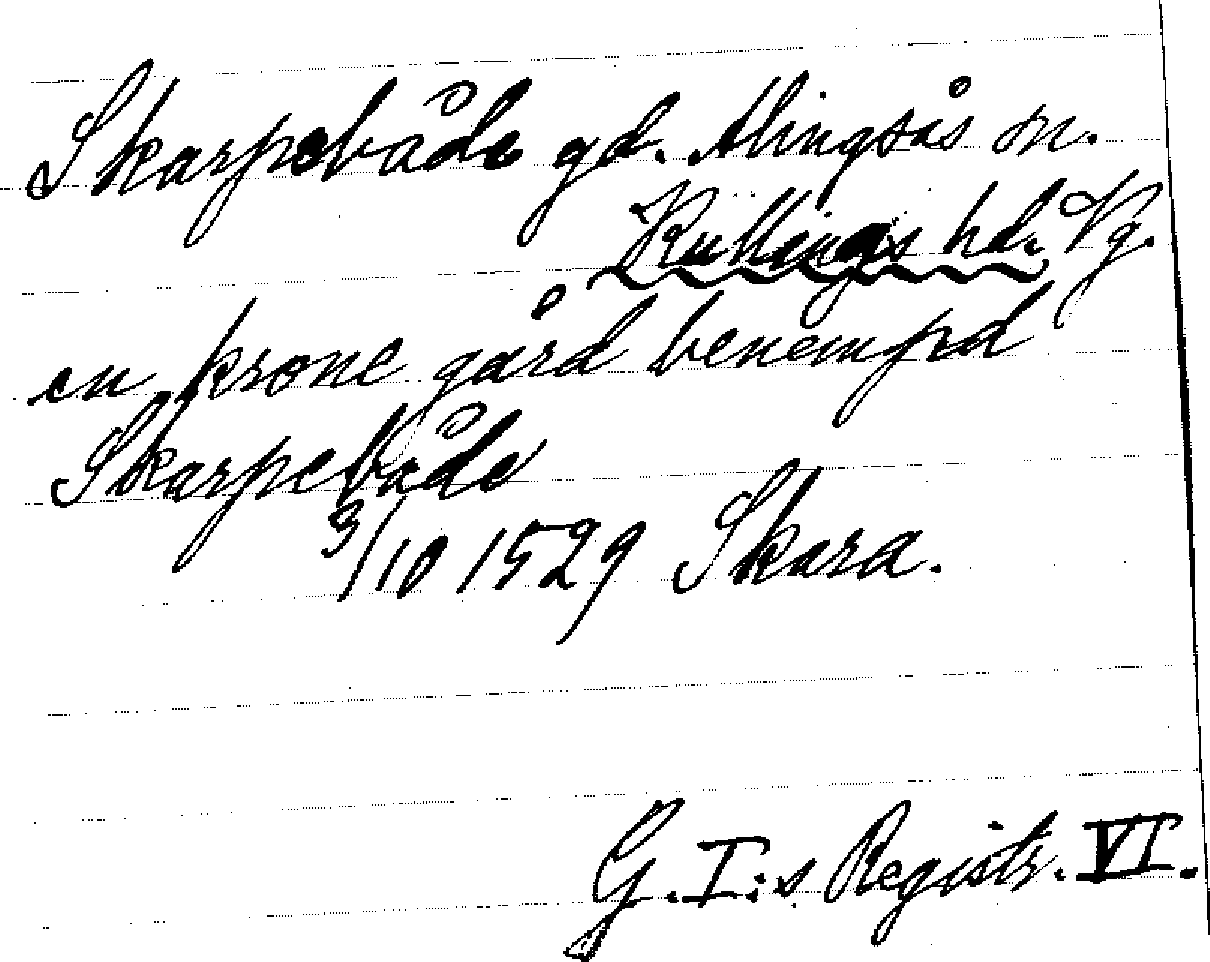 Skarpebåde gd. Alingsås sn.
Kullings hd. Vg.
en krone gård benempd
Skarpebåde
3/10 1529 Skara.
G.I:s Registr. VI.